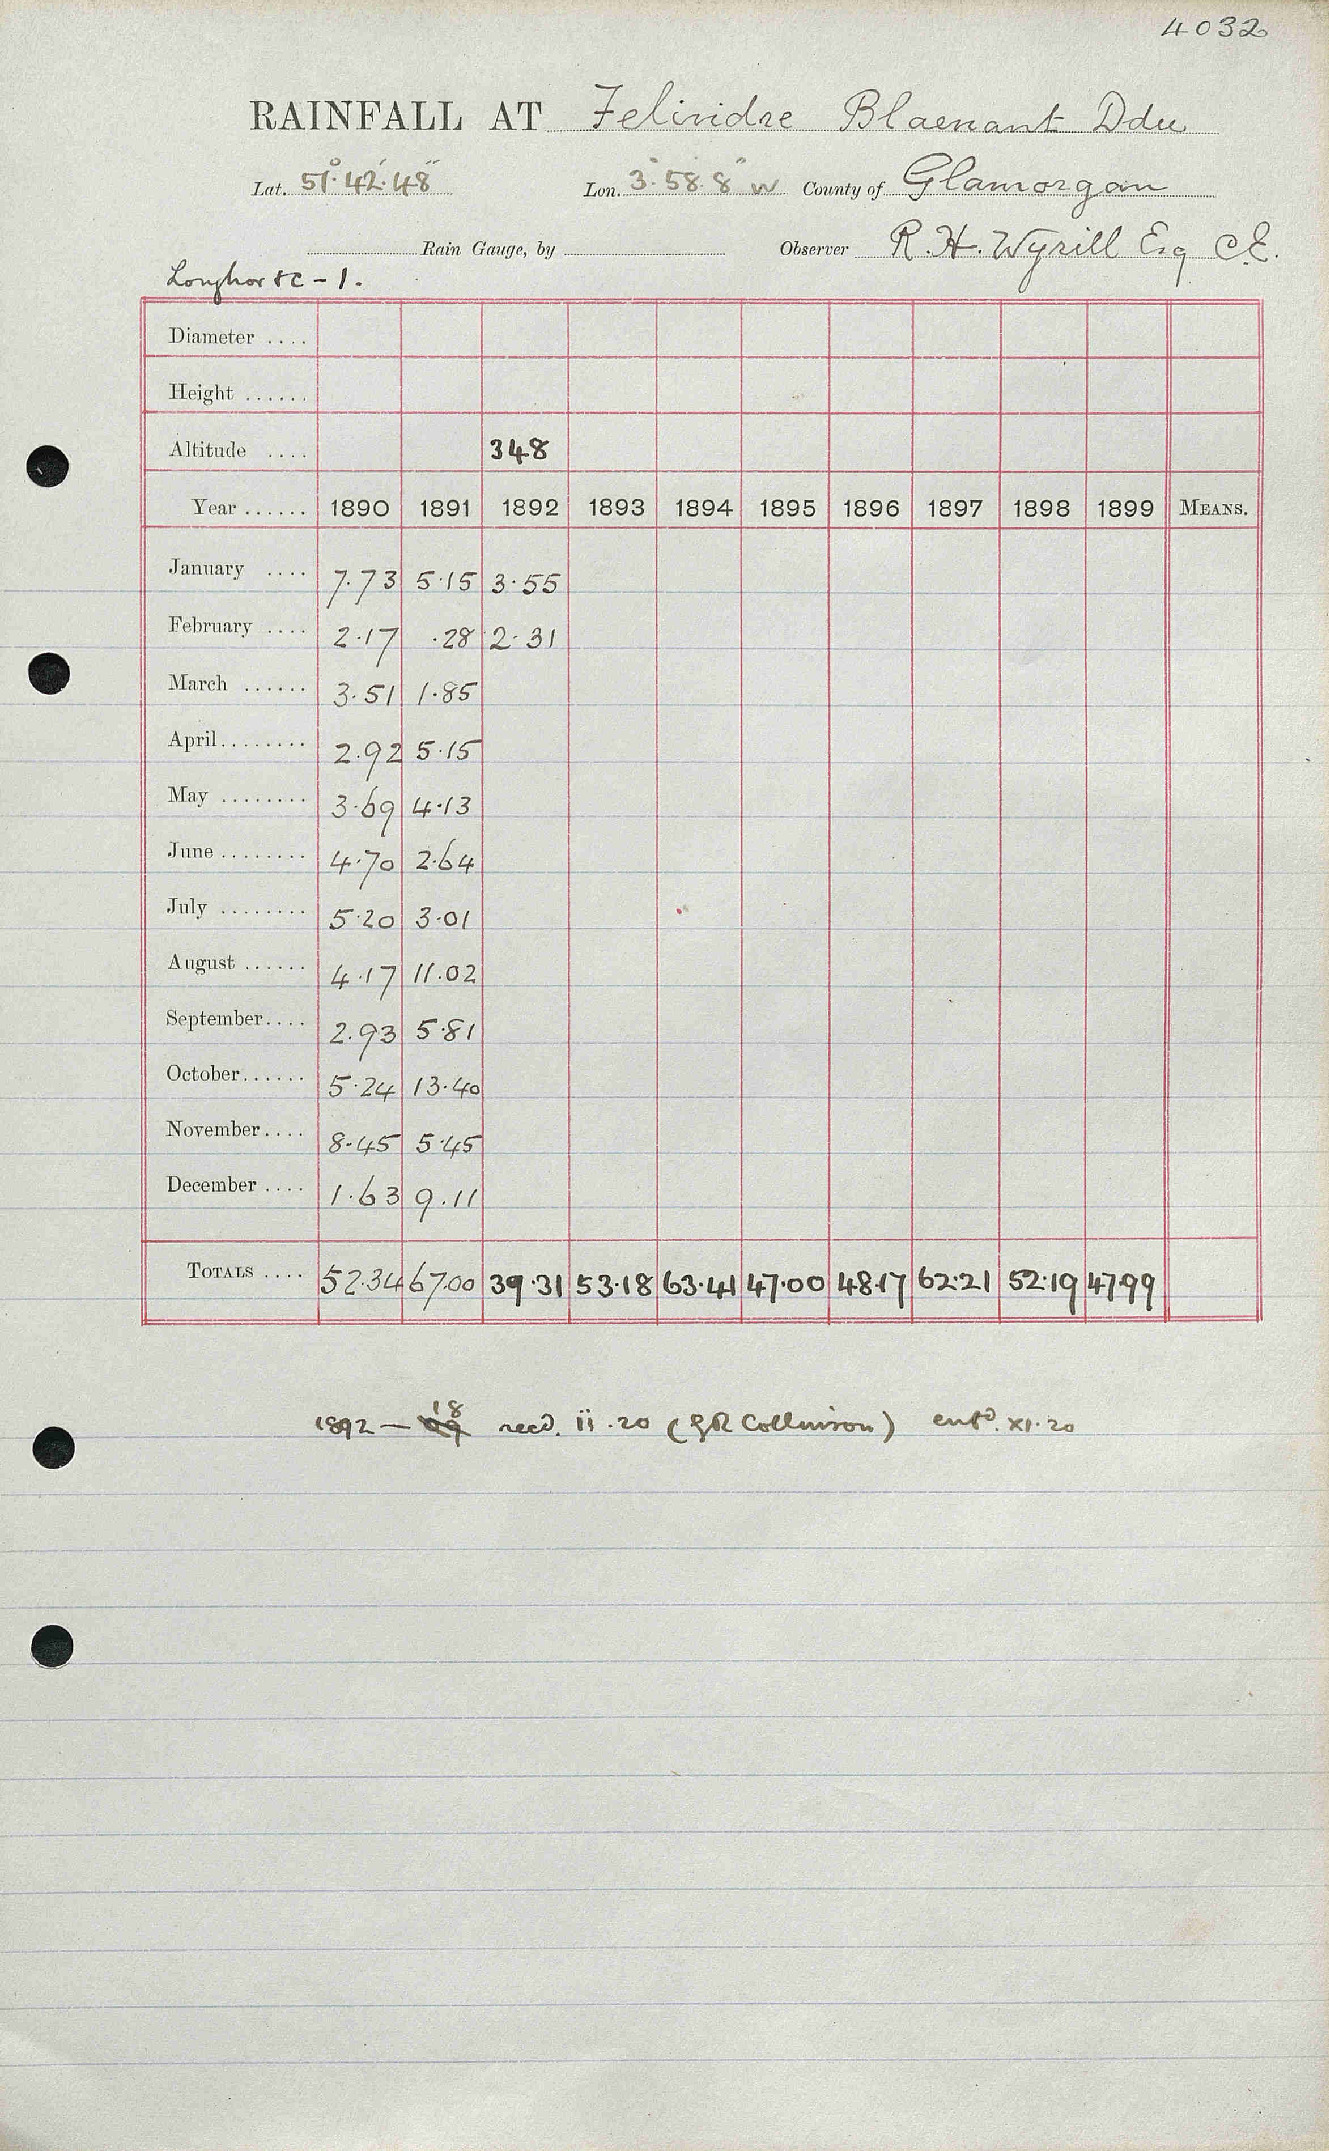 4032
RAINFALL AT Felindre Blaenant Ddu
Lat. 51° 42' 48" Lon. 3° 58' 8" W County of Glamorgan
Rain Gauge, by Observer R. H. Wyrill Esq C.E.
Loughor &c - 1.
Diameter ....
Height ......
Altitude .... 348
Year ...... 1890 1891 1892 1893 1894 1895 1896 1897 1898 1899 MEANS.
January .... 7.73 5.15 3.55
February .... 2.17 .28 2.31
March ...... 3.51 1.85
April........ 2.92 5.15
May ........ 3.69 4.13
June ........ 4.70 2.64
July ........ 5.20 3.01
August ...... 4.17 11.02
September.... 2.93 5.81
October...... 5.24 13.40
November.... 8.45 5.45
December .... 1.63 9.11
TOTALS .... 52.34 67.00 39.31 53.18 63.41 47.00 48.17 62.21 52.19 47.99
1892 — 18 recd. ii.20 (GR Collinson) entd. XI.20